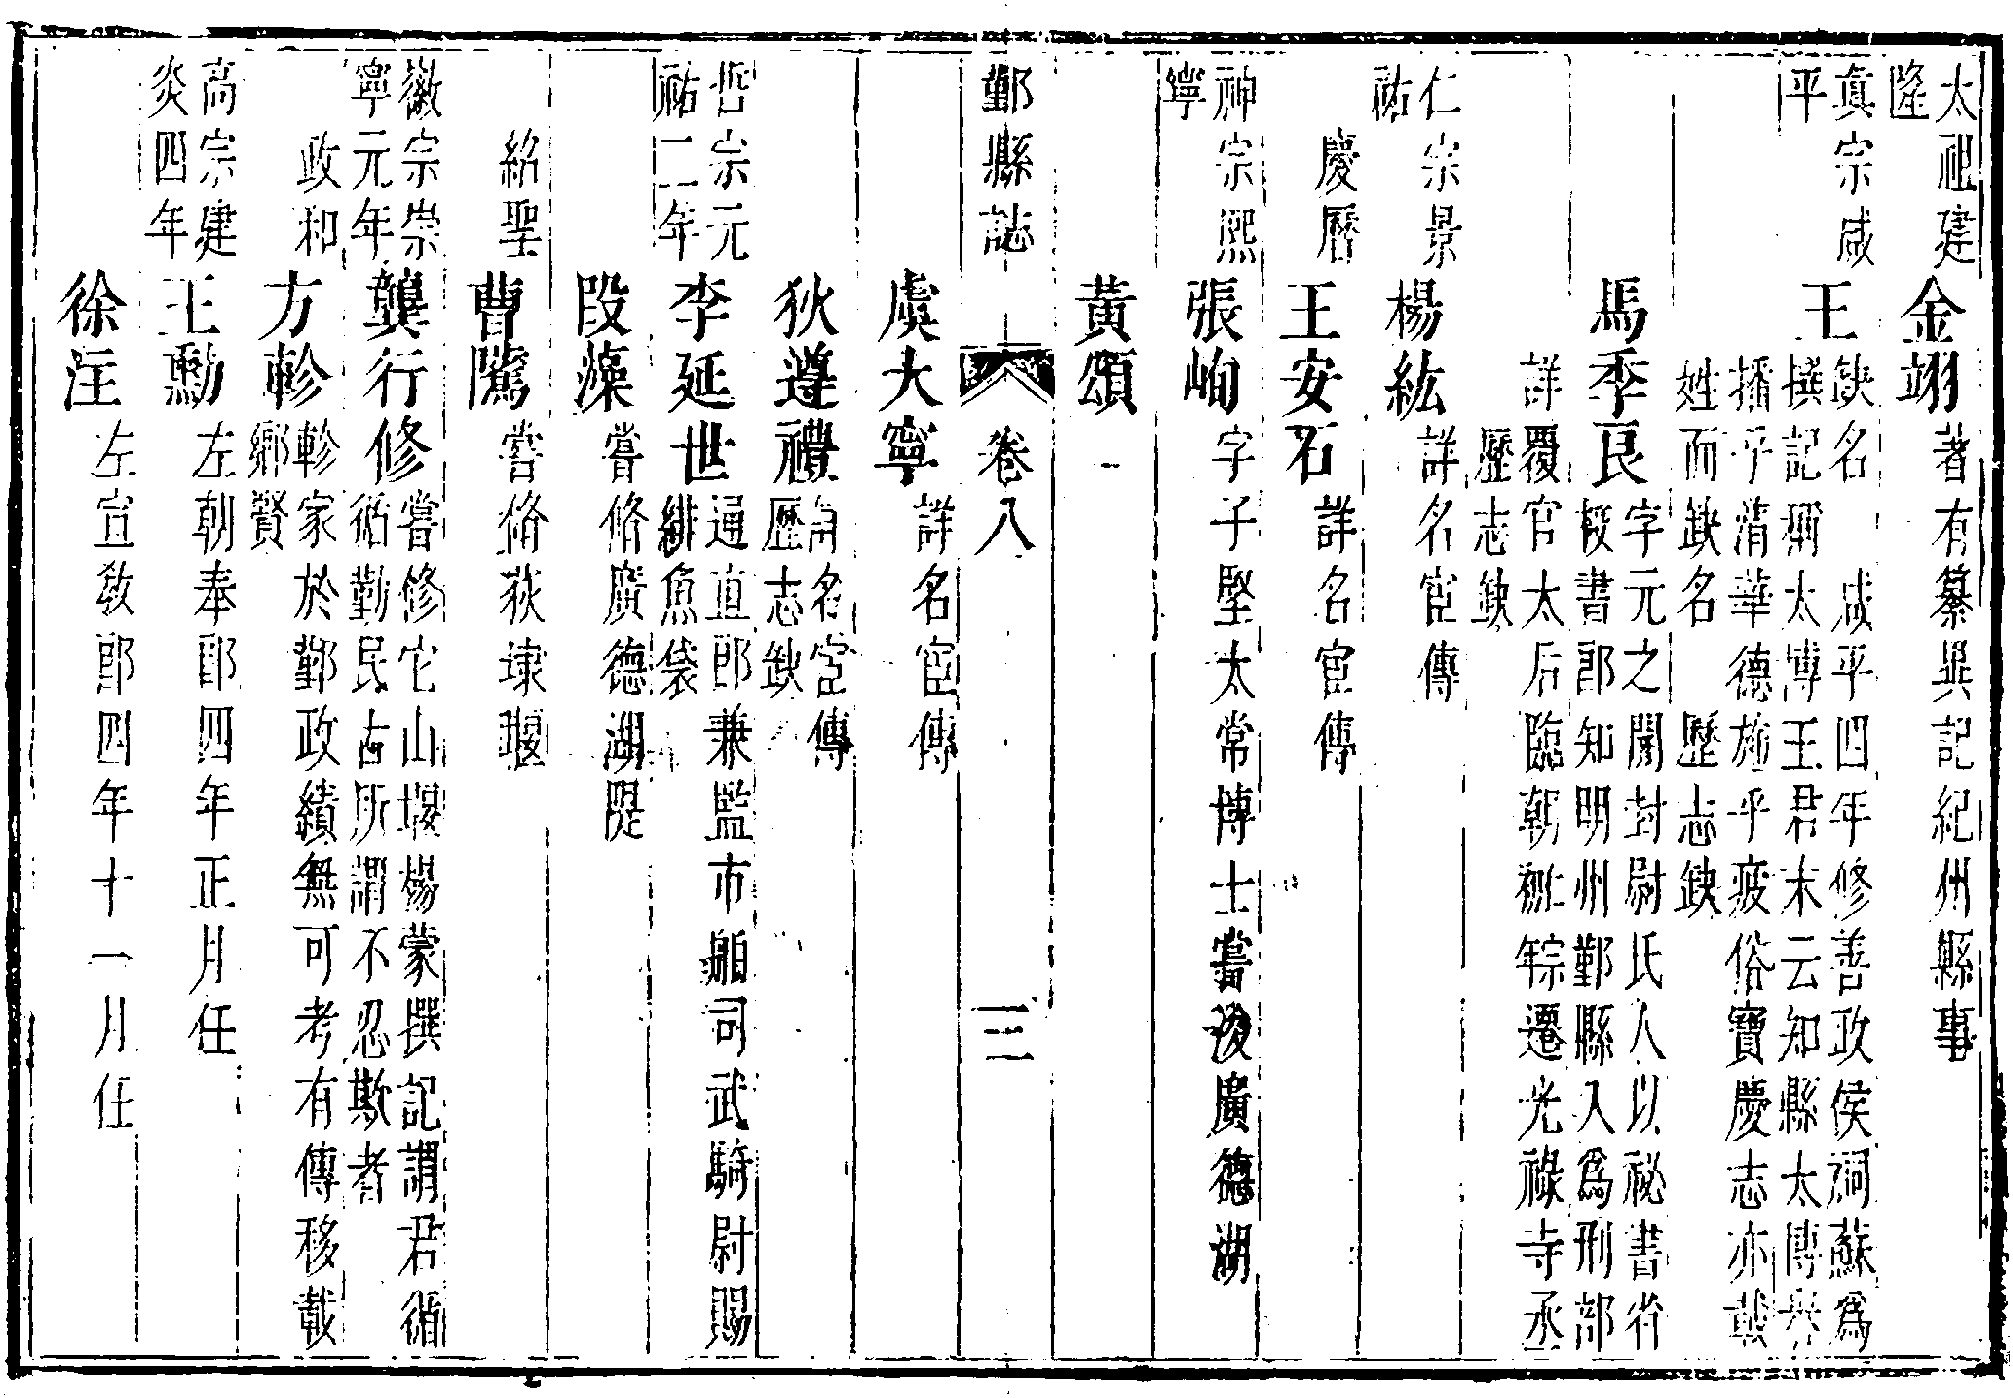 太祖建隆 金翊 著有纂異記紀州縣事
真宗咸平 王 缺名 咸平四年修善政侯祠蘇為
撰記稱太博王君末云知縣太博譽
播乎清華德施乎疲俗寶慶志亦載
姓而缺名 歷志缺
馬季良 字元之開封尉氏人以祕書省
校書郎知明州鄞縣入為刑部
詳覆官太后臨朝祕 遷光祿寺丞
歷志缺
仁宗景祐 楊紘 詳名宦傳
慶曆 王安石 詳名宦傳
神宗熙寧 張峋 字子堅太常博士嘗浚廣德湖
黃頌
鄞縣誌 卷八 三
虞大寧 詳名宦傳
狄遵禮 詳名宦傳
歷志缺
哲宗元祐二年 李延世 通直郎兼監市舶司武騎尉賜
緋魚袋
段藻 嘗脩廣德湖隄
紹聖 曹隲 嘗脩荻埭堰
徽宗崇寧元年 龔行修 嘗修它山堰楊蒙撰記謂君循
循勤民古所謂不忍欺者
政和 方軫 軫家於鄞政績無可考有傳移載
鄉賢
高宗建炎四年 王勳 左朝奉郎四年正月任
徐注 左宣敎郎四年十一月任